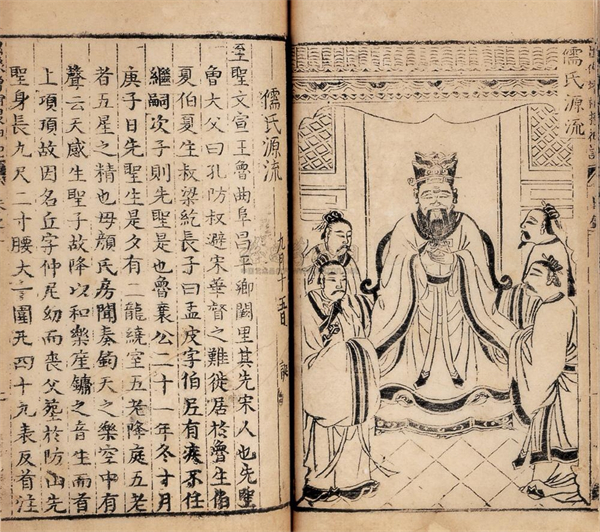 儒氏源流
儒氏源流
至聖文宣王魯曲阜昌平鄉闕里其先宋人也先聖
魯大父曰孔防叔避宋督之難徙居於魯生伯
夏伯夏生叔梁紇長子曰孟皮字伯尼有疾不任
繼嗣次子則先聖是也魯襄公二十一年冬十月
庚子日先聖生是夕有二龍繞室五老降庭五老
者五星之精也母顏氏房聞奏鈞天之樂空中有
聲云天感生聖子故降以和樂笙鏞之音生而首
上頂項故因名丘字仲尼幼而喪父葬於防山先
聖身長九尺二寸腰大圍凡四十九表反首洼